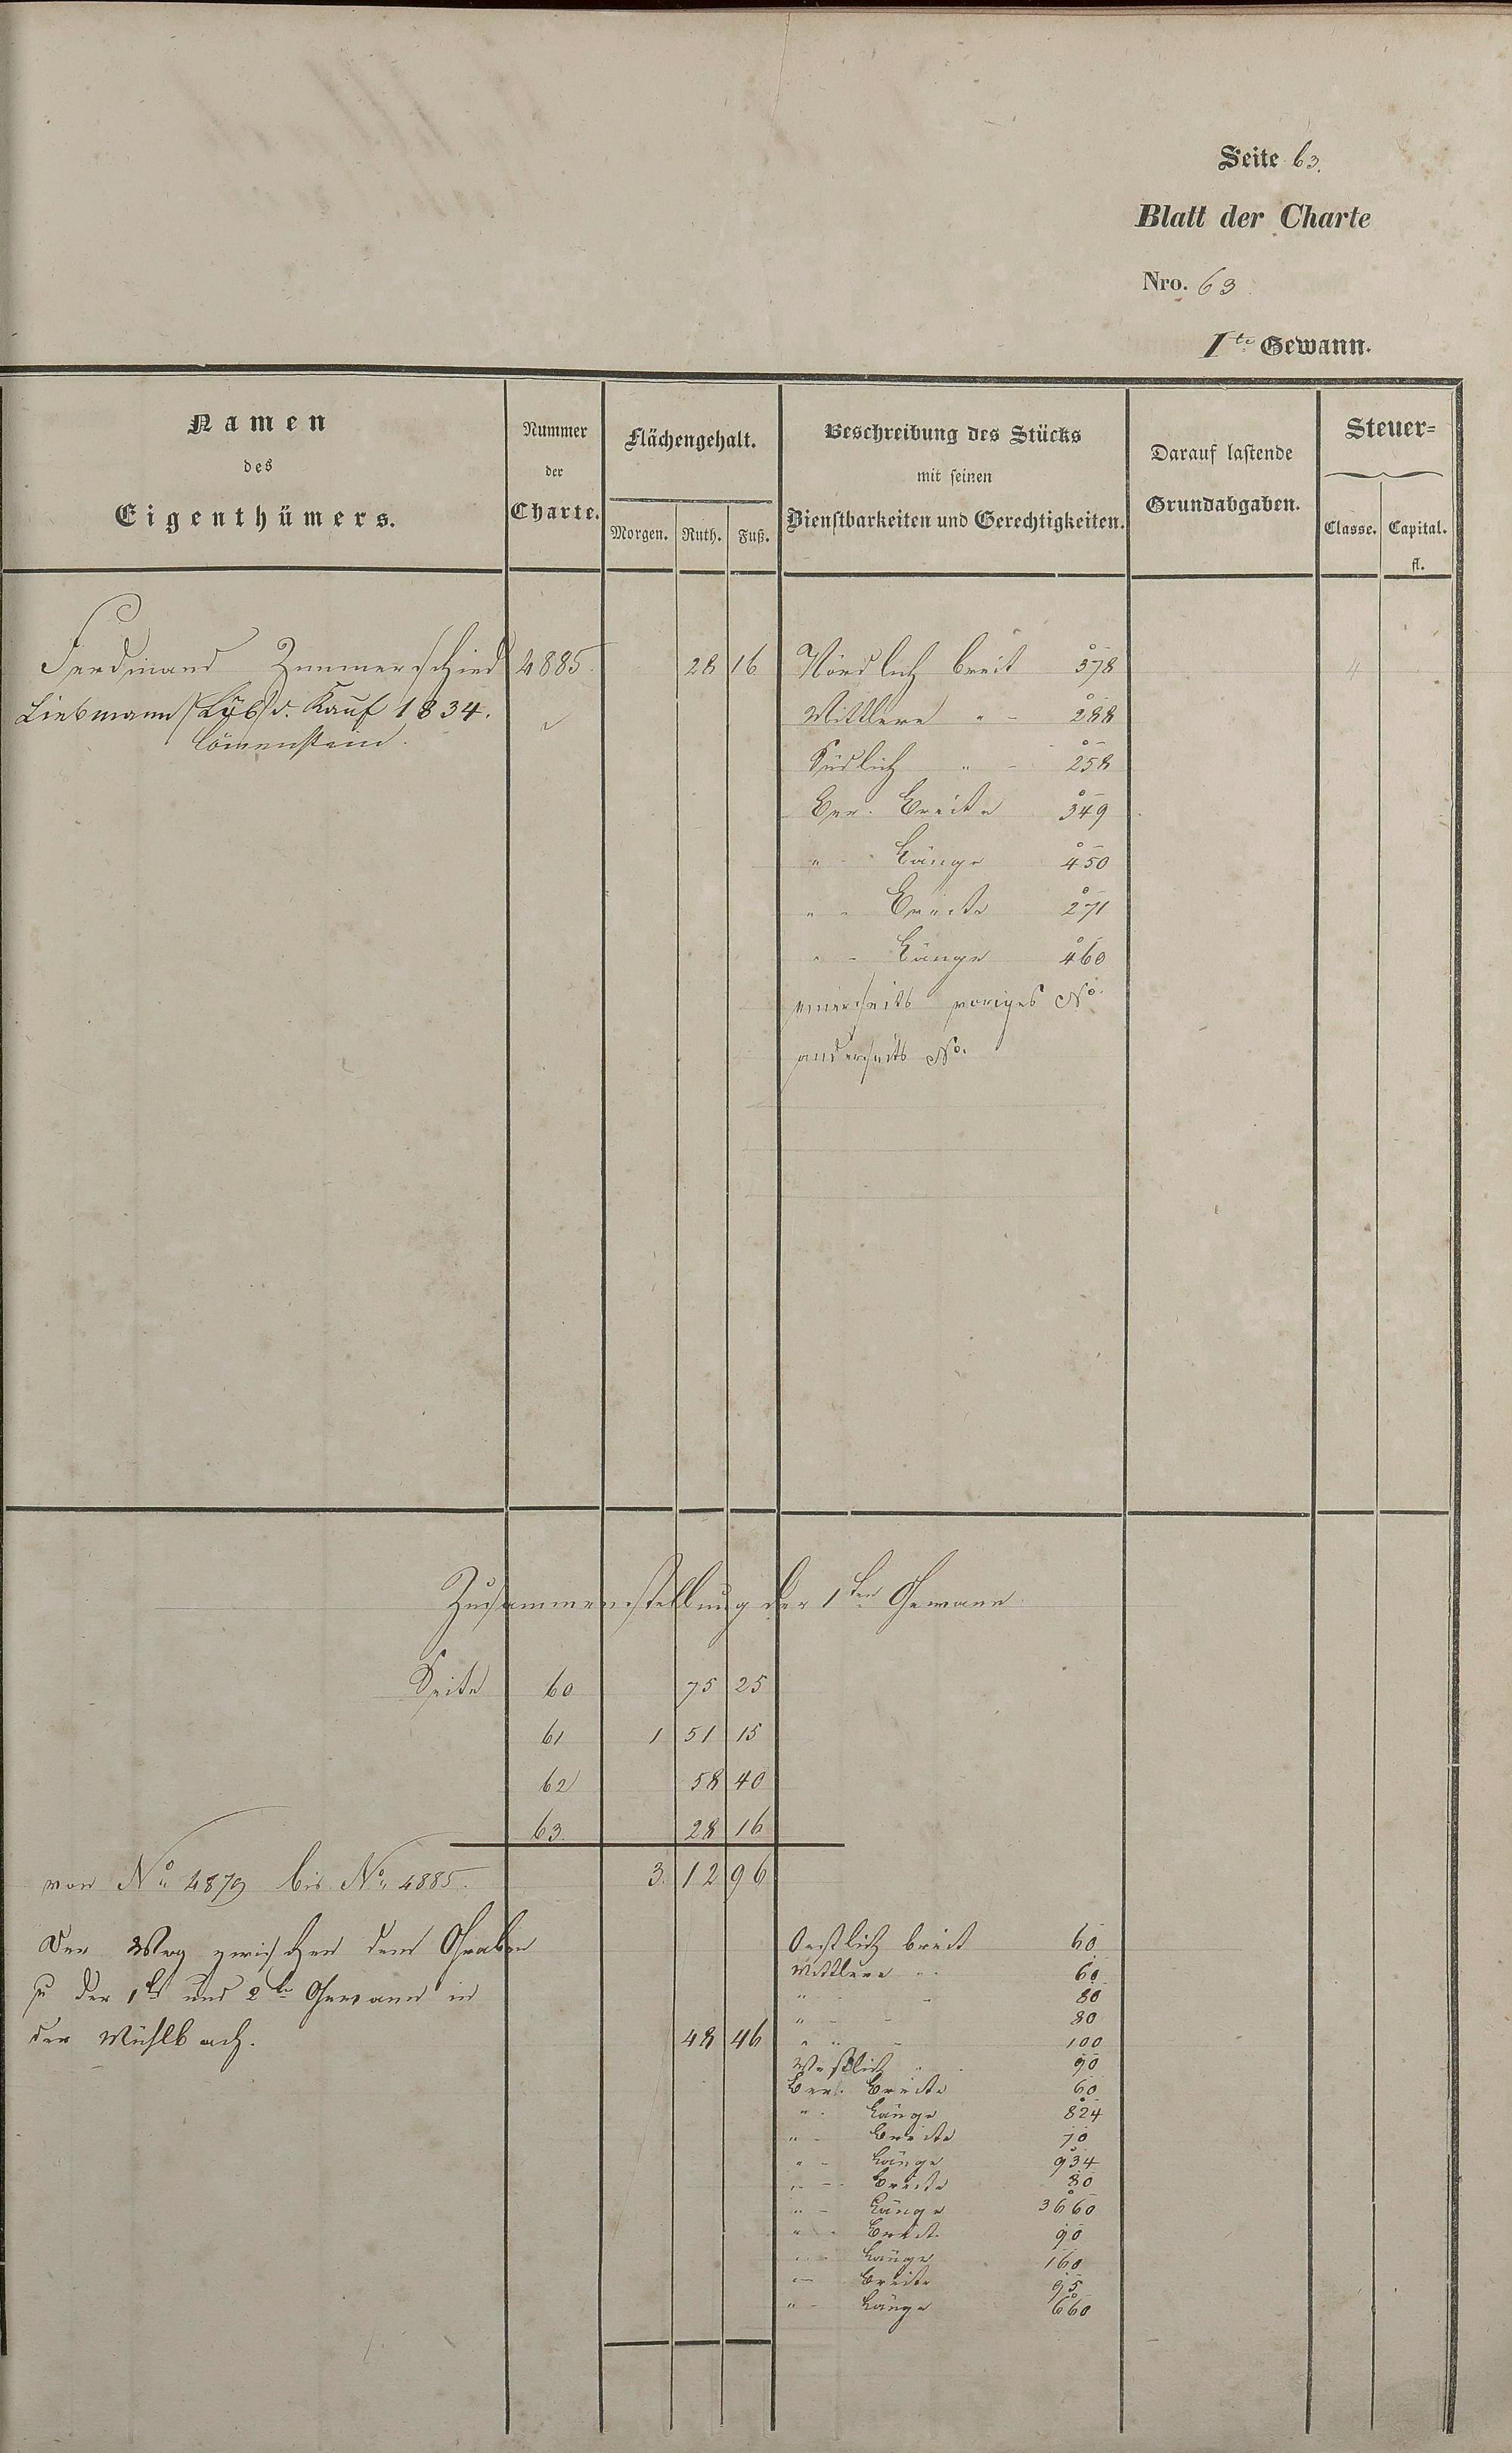 Seite 63.
Blatt der Charte
Nro. 63
1te Gewann.
Namen
des
Eigenthümers.
Nummer
der
Charte.
Flächengehalt.
Morgen. Ruth. Fuß.
Beschreibung des Stücks
mit seinen
Dienstbarkeiten und Gerechtigkeiten.
Darauf lastende
Grundabgaben.
Steuer=
Classe. Capital.
fl.
Ferdinand Zimmerschied 4885. 28 16 Nördlich breit 378 4
Liebmann d. Kauf 1834. Mittlere " - 288
Löwenstein. Südlich " - 258
Ber. Breite 349
" - Länge 450
" - Breite 271
" - Länge 460
einerseits voriges No.
anderseits No.
Zusammenstellung der 1ten Gewann
Seite 60 75 25
61 1 51 15
62 58 40
63. 28 16
von No. 4879 bis No. 4885. 3. 12 96
Der Weg zwischen dem Graben Oestlich breit 60
Mittlere " - 60
u der 1te und 2te Gewann in " - 80
" - - 80
der Mühlbach. 48 46 " " - 100
Westlich " - 90
Ber. Breite 60
" - Länge 824
" - Breite 70
" - Länge 934
" - Breite 80
" - Länge 3660
" - Breite 90
" - Länge 160
" - Breite 95
" - Länge 660